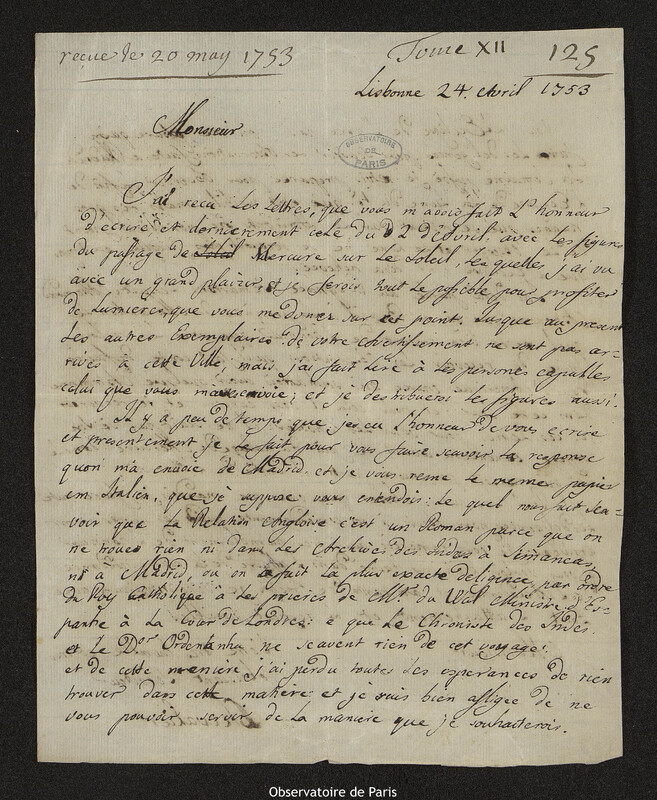 reçue le 20 may 1753
Tome XII 125
Lisbonne 24. Avril 1753
Monsieur
OBSERVATOIRE DE PARIS
J'ai reçu les lettres, que vous m'avois fait l'honneur
d'ecrire et dernierement cele du 2 d'Avril, avec les figures
du passage de Mercure sur le Soleil, les quelles j'ai vu
avec un grand plaizir, et je serois tout le possible pour profiter
de lumieres, que vous me donez sur cet point. Jusque au present
les autres Exemplaires de votre avertissement ne sont pas ar-
rivés à cette Ville, mais j'ai fait lire à les persones capables
celui que vous m'avez envoie; et je destribuerai les figures aussi.
Il y a peu de temps, que j'es eu l'honneur de vous ecrire
et presentement je le fait pour vous faire sçavoir la response
quon m'a envoie de Madrid et je vous reme le meme papier
em Italien, que je suppose vous entendois: le quel nous fait sca-
voir que la Relation Angloise c'est un Roman parce que on
ne trouve rien ni dans les Archives des Indes à Simancas,
ni à Madrid, ou on a fait la plus exacte deligence par ordre
du Roy Catholique à les prieres de Mr. du Wal Ministre d'Es-
pagne à la Cour de Londres: e que le Chroniste des Indes
et le Dor. Ordenanha ne scavent rien de cet voyage:
et de cette maniere j'ai perdu toutes les esperances de rien
trouver dans cette matiere et je suis bien afligée de ne
vous pouvoir servir de la maniere que je souhaiterois.
Observatoire de Paris